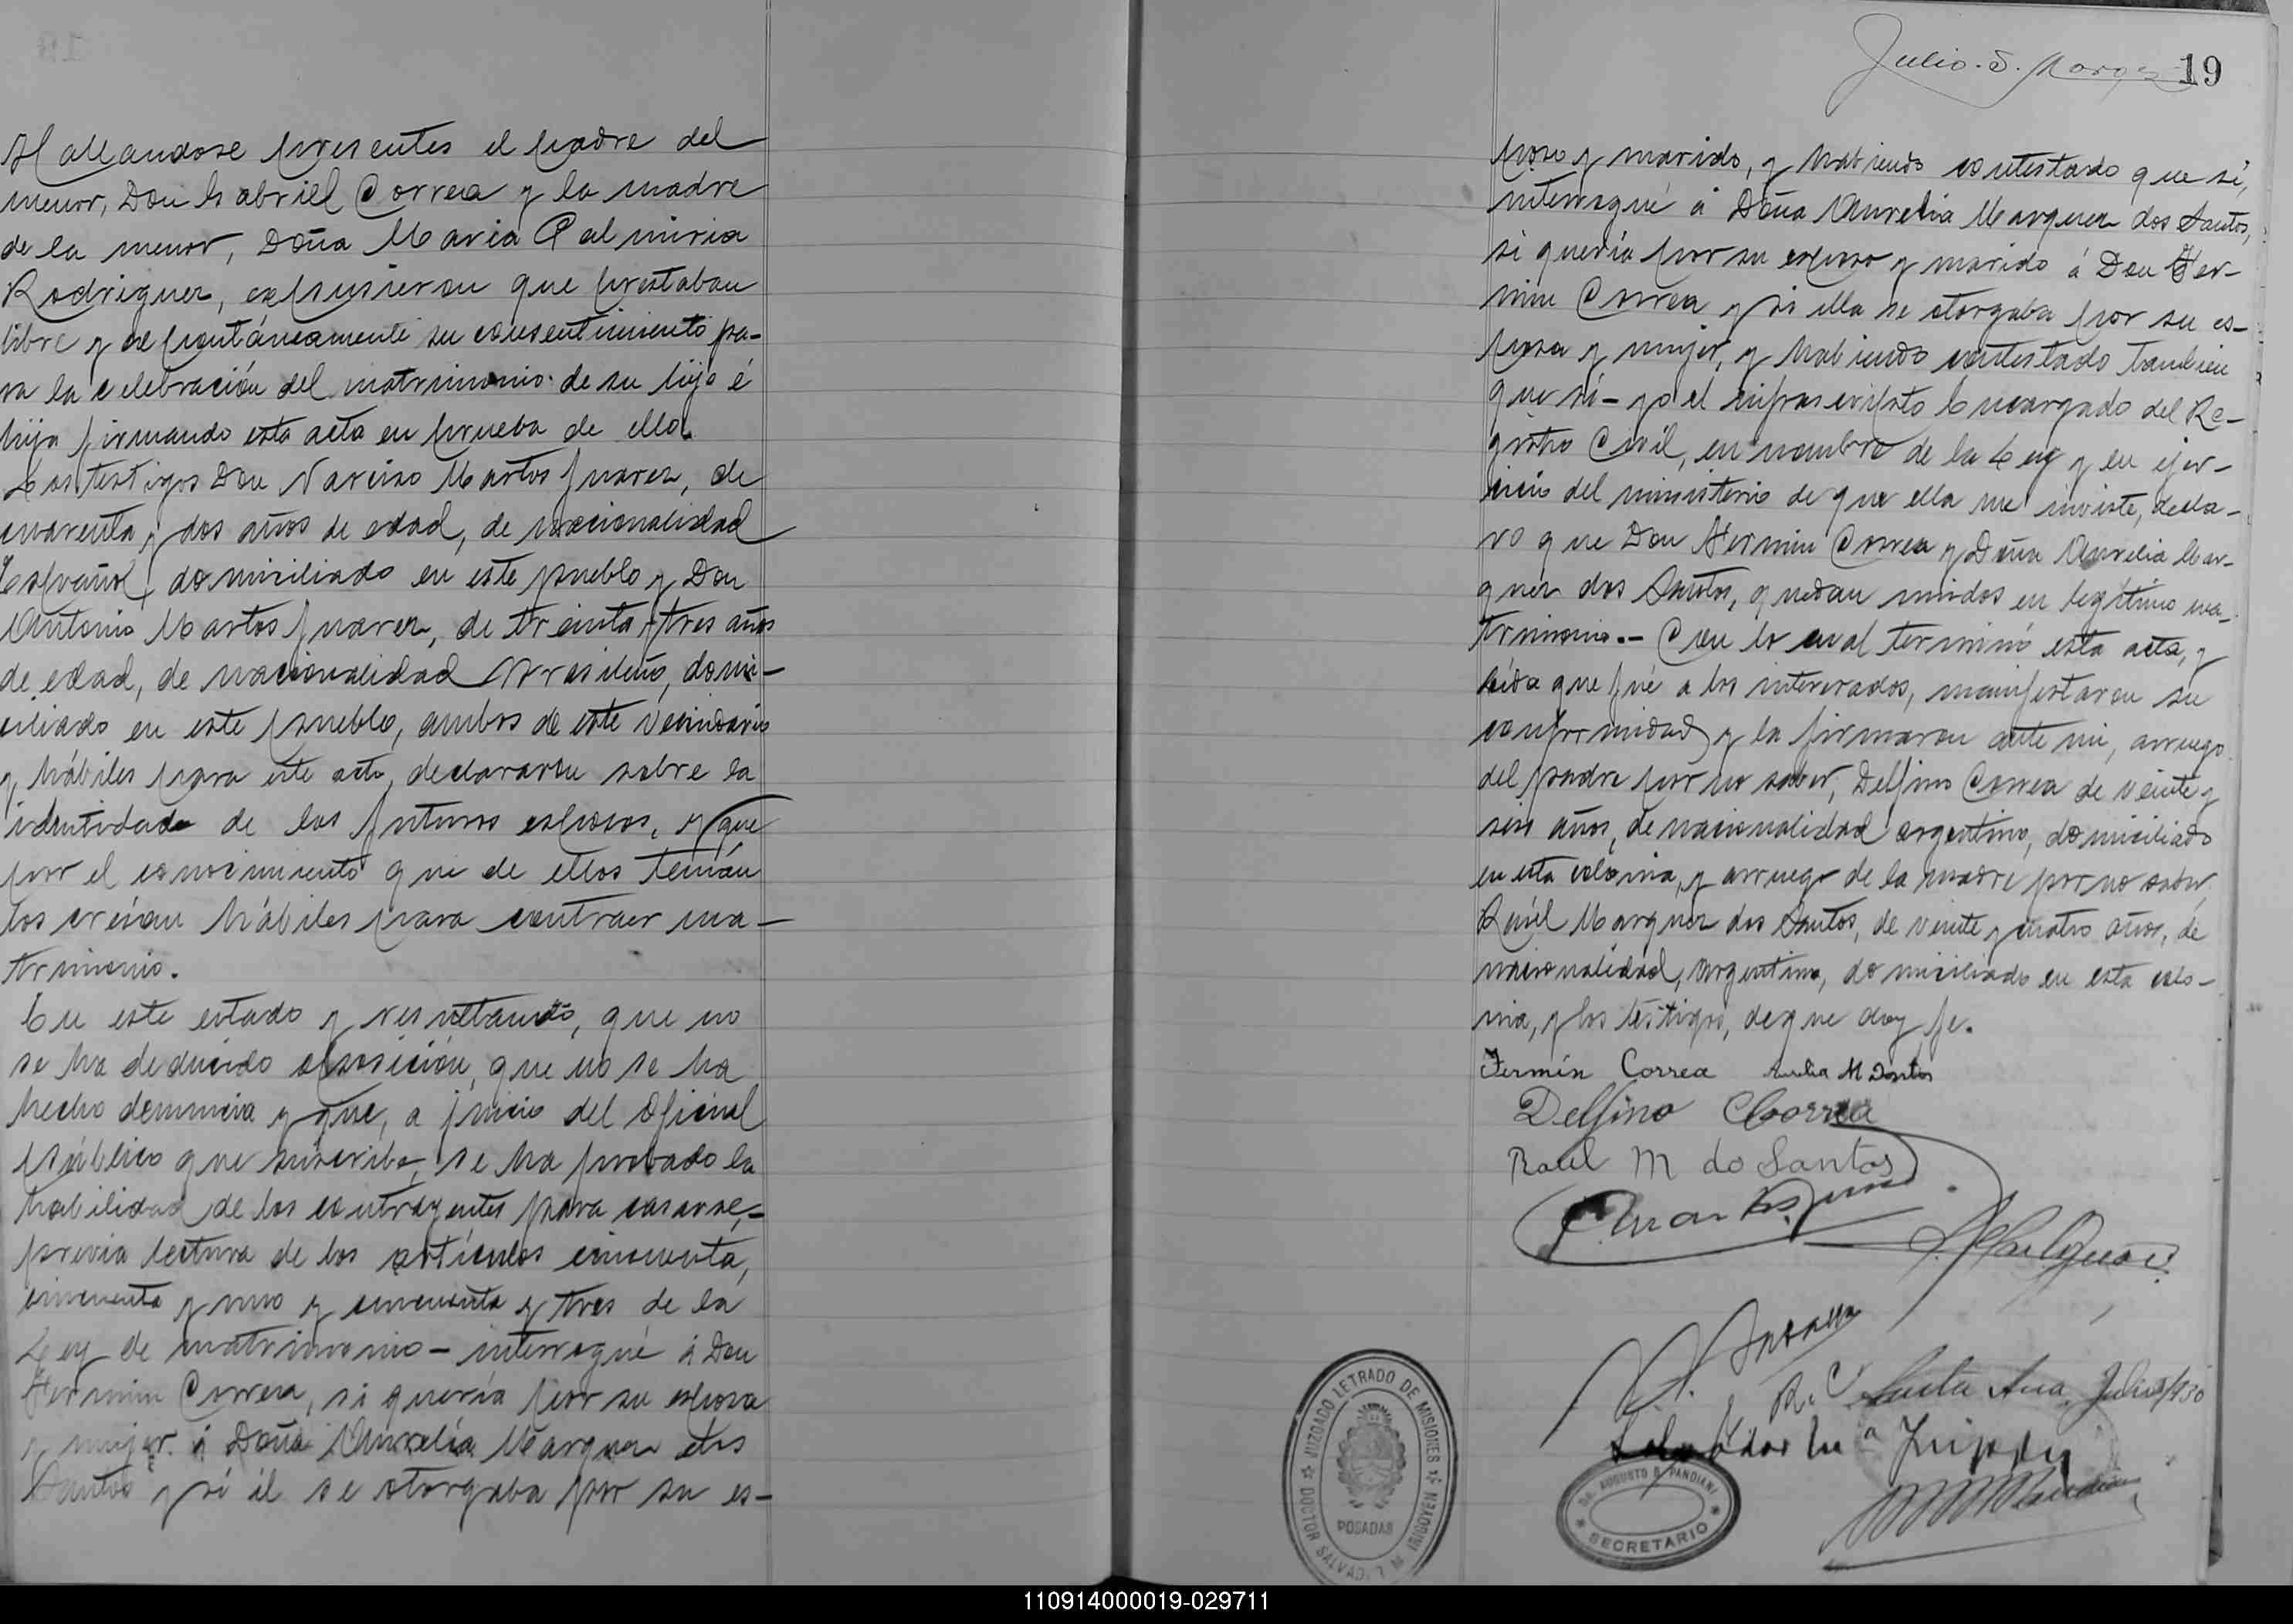 Hallandose presentes el padre del
menor, Don Gabriel Correa y la madre
de la menor, Doña Maria Palmiria
Rodriguez, expusieron que prestaban
libre y expontáneamente su consentimiento pa-
ra la celebración del matrimonio de su hijo é
hija firmando esta acta en prueba de ello.
Los testigos Don Narciso Martos Juarez, de
cuarenta y dos años de edad, de nacionalidad
Español, domiciliado en este pueblo y Don
Antonio Martos Juarez, de treinta y tres años
de edad, de nacionalidad Brasileño, domi-
ciliado en este pueblo, ambos de este vecindario
y hábiles para este acto, declararon sobre la
identidad de los futuros esposos, y que
por el conocimiento que de ellos tenían
los creían hábiles para contraer ma-
trimonio.
En este estado y resultando, que no
se ha deducido oposición, que no se ha
hecho denuncia y que, a juicio del Oficial
Público que suscribe, se ha probado la
habilidad de los contrayentes para casarse,-
previa lectura de los artículos cincuenta,
cincuenta y uno y cincuenta y tres de la
Ley de matrimonio - interrogué á Don
Fermin Correa, si quería por su esposa
y mujer á Doña Aurelia Marquez dos
Santos y si él se otorgaba por su es-
Julio. 5.
19
poso y marido, y habiendo contestado que si,
interrogué á Doña Aurelia Marquez dos Santos,
si quería por su esposo y marido á Don Fer-
min Correa y si ella se otorgaba por su es-
posa y mujer, y habiendo contestado tambien
que si - yo el infrascripto Encargado del Re-
gistro Civil, en nombre de la Ley y en ejer-
cicio del ministerio de que ella me inviste, decla-
ro que Don Fermin Correa y Doña Aurelia Mar-
quez dos Santos, quedan unidos en legítimo ma-
trimonio.- Con lo cual terminó esta acta, y
leida que fué a los interesados, manifestaron su
conformidad y la firmaron ante mi, arruego
del padre por no saber, Delfino Correa de veinte y
seis años, de nacionalidad argentino, domiciliado
en esta colonia, y arruego de la madre por no saber,
Raúl Marquez dos Santos, de veinte y cuatro años, de
nacionalidad, argentino, domiciliado en esta colo-
nia, y los testigos, de que doy fe.
Fermín Correa Aurelia M Dos Santos
Delfino Correa
Raul M do Santos
R. C. Santa Ana, Julio 5/930
JUZGADO LETRADO DE MISIONES
DOCTOR SALVADOR M. IRIGOYEN
POSADAS
DR. AUGUSTO B. PANDIANI
SECRETARIO
110914000019-029711